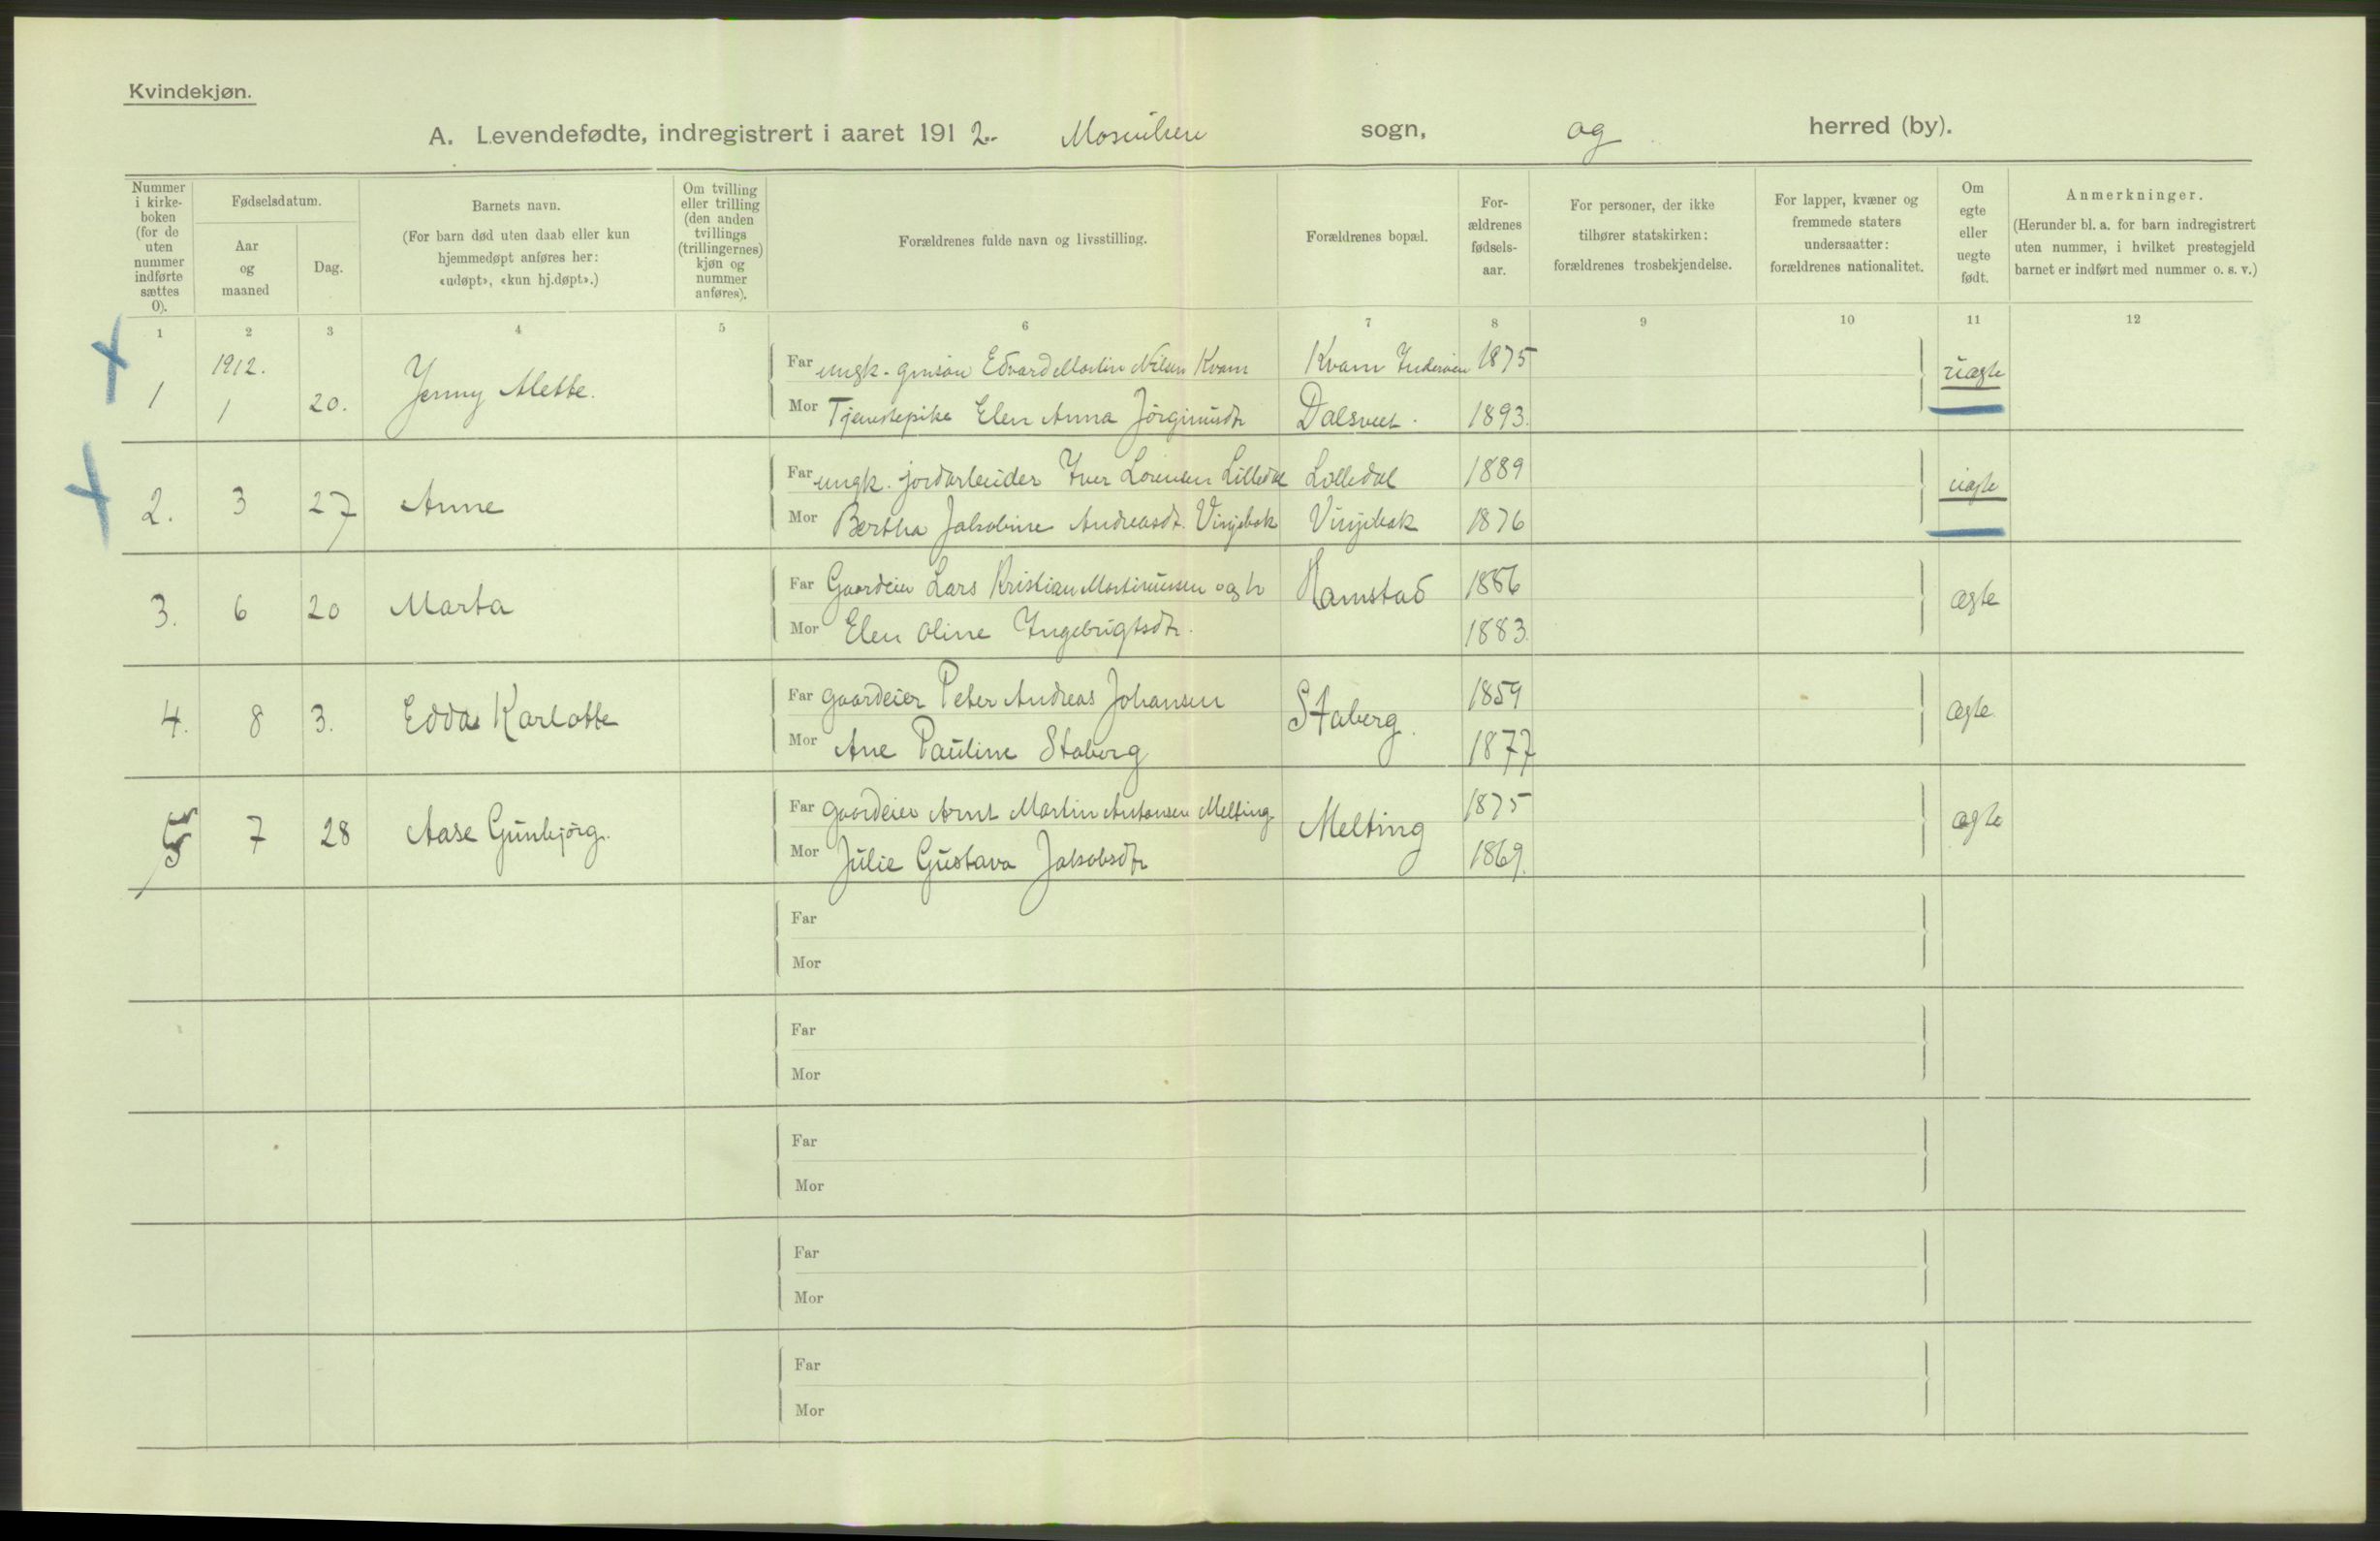 Kvindekjøn.
A. Levendefødte, indregistrert i aaret 1912. sogn, og herred (by).
Nummer i kirke-boken (for de uten nummer indførte sættes 0).
Fødselsdatum.
Aar og maaned
Dag.
Barnets navn.
(For barn død uten daab eller kun hjemmedøpt anføres her: «udøpt», «kun hj.døpt».)
Om tvilling eller trilling (den anden tvillings (trillingernes) kjøn og nummer anføres).
Forældrenes fulde navn og livsstilling.
Forældrenes bopæl.
For-ældrenes fødsels-aar.
For personer, der ikke tilhører statskirken: forældrenes trosbekjendelse.
For lapper, kvæner og fremmede staters undersaatter: forældrenes nationalitet.
Om egte eller uegte født.
Anmerkninger.
(Herunder bl. a. for barn indregistrert uten nummer, i hvilket prestegjeld barnet er indført med nummer o. s. v.)
1 2 3 4 5 6 7 8 9 10 11 12
1912.
1 1 20. Jenny Alette.
Far ungk. Edvard Martin Nilsen Kvam Kvam Inderøen 1875 uægte
Mor Tjenestepike Elen Anna Jørginusdtr Dalsveet. 1893.
2. 3 27 Anne
Far ungk. jordarbeider Iver Lorentsen Lilledal Lilledal 1889 uægte
Mor Bertha Jakobine Andreasdr. Vinjebak Vinjebak 1876
3. 6 20 Marta
Far Gaardeier Lars Kristian Martinussen og h Hamstad 1886 ægte
Mor Elen Oline Ingebrigtsdtr. 1883.
4. 8 3. Edda Karlotte
Far gaardeier Peter Andreas Johansen Staberg. 1859 ægte.
Mor Ane Pauline Staberg 1877
5 7 28 Aase Gunbjørg.
Far gaardeier Arnt Martin Antonsen Melting Melting 1875 ægte
Mor Julie Gustava Jakobsdtr 1869.
Far
Mor
Far
Mor
Far
Mor
Far
Mor
Far
Mor